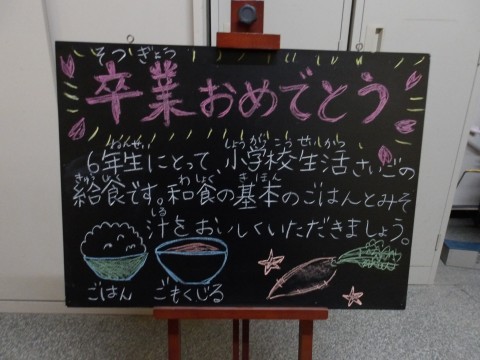 そつぎょう
卒業おめでとう
ねんせい しょうがっこうせいかつ
6年生にとって 小学校生活さいごの
きゅうしょく わしょく きほん
給食です。和食の基本のごはんとみそ
しる
汁をおいしくいただきましょう。
ごはん ごもくじる